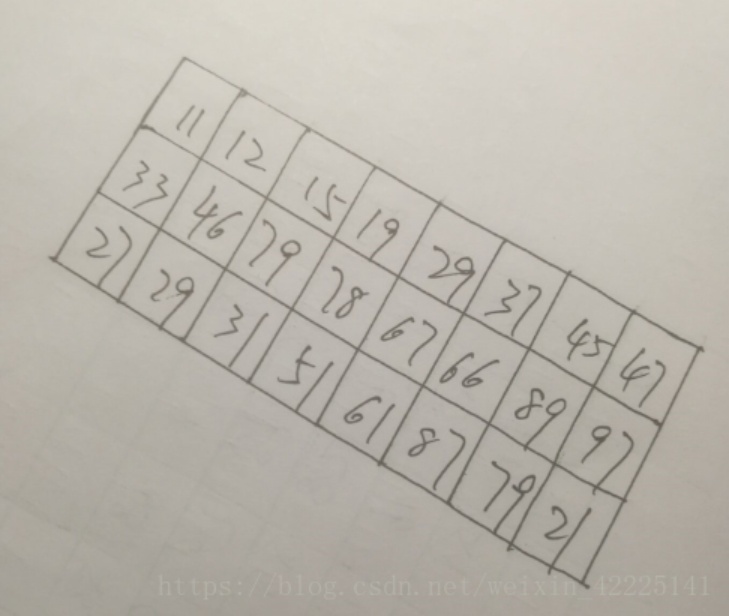 11 12 15 19 29 37 45 47
33 46 79 78 67 66 89 97
27 29 31 51 61 87 79 21
https://blog.csdn.net/weixin_42225141